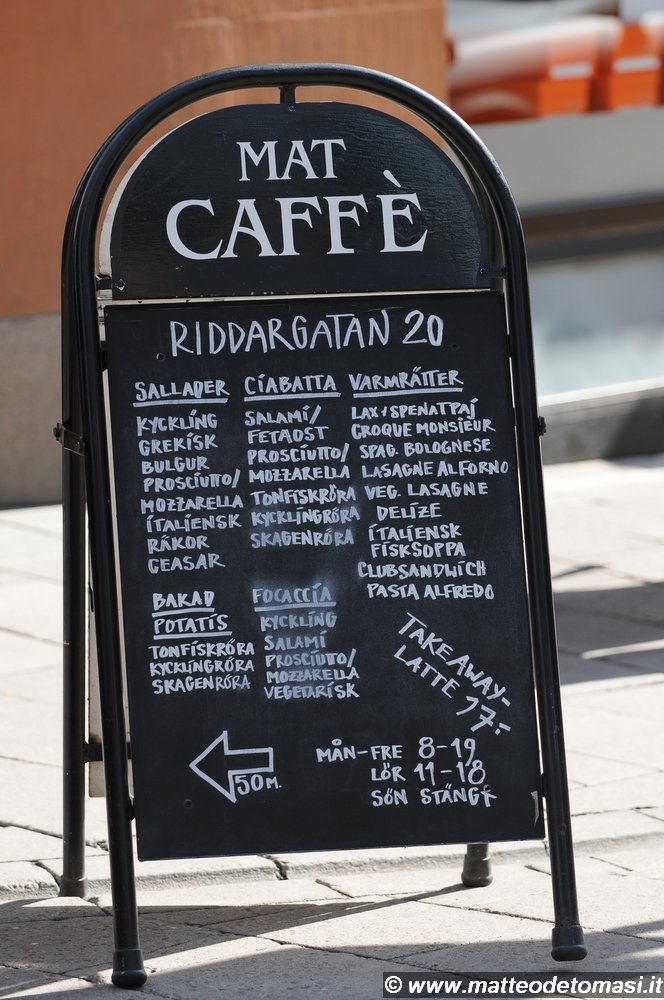 MAT
CAFFÈ
RIDDARGATAN 20
SALLADER
KYCKLING
GREKISK
BULGUR
PROSCIUTTO/
MOZZARELLA
ITALIENSK
RÄKOR
CEASAR
CIABATTA
SALAMI/
FETAOST
PROSCIUTTO/
MOZZARELLA
TONFISKRÖRA
KYCKLINGRÖRA
SKAGENRÖRA
VARMRÄTTER
LAX & SPENATPAJ
CROQUE MONSIEUR
SPAG. BOLOGNESE
LASAGNE ALFORNO
VEG. LASAGNE
DELIZE
ITALIENSK
FISKSOPPA
CLUBSANDWICH
PASTA ALFREDO
BAKAD
POTATIS
TONFISKRÖRA
KYCKLINGRÖRA
SKAGENRÖRA
FOCACCIA
KYCKLING
SALAMI
PROSCIUTTO/
MOZZARELLA
VEGETARISK
TAKEAWAY-
LATTE 17:-
50M.
MÅN-FRE 8-19
LÖR 11-18
SÖN STÄNGT
© www.matteodetomasi.it